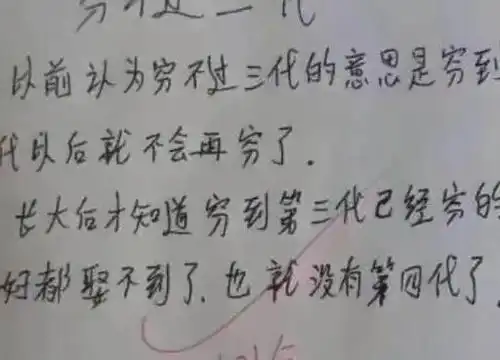 穷不过三代
以前认为穷不过三代的意思是穷到
代以后就不会再穷了.
长大后才知道穷到第三代已经穷的
好都娶不到了.也就没有第四代了.